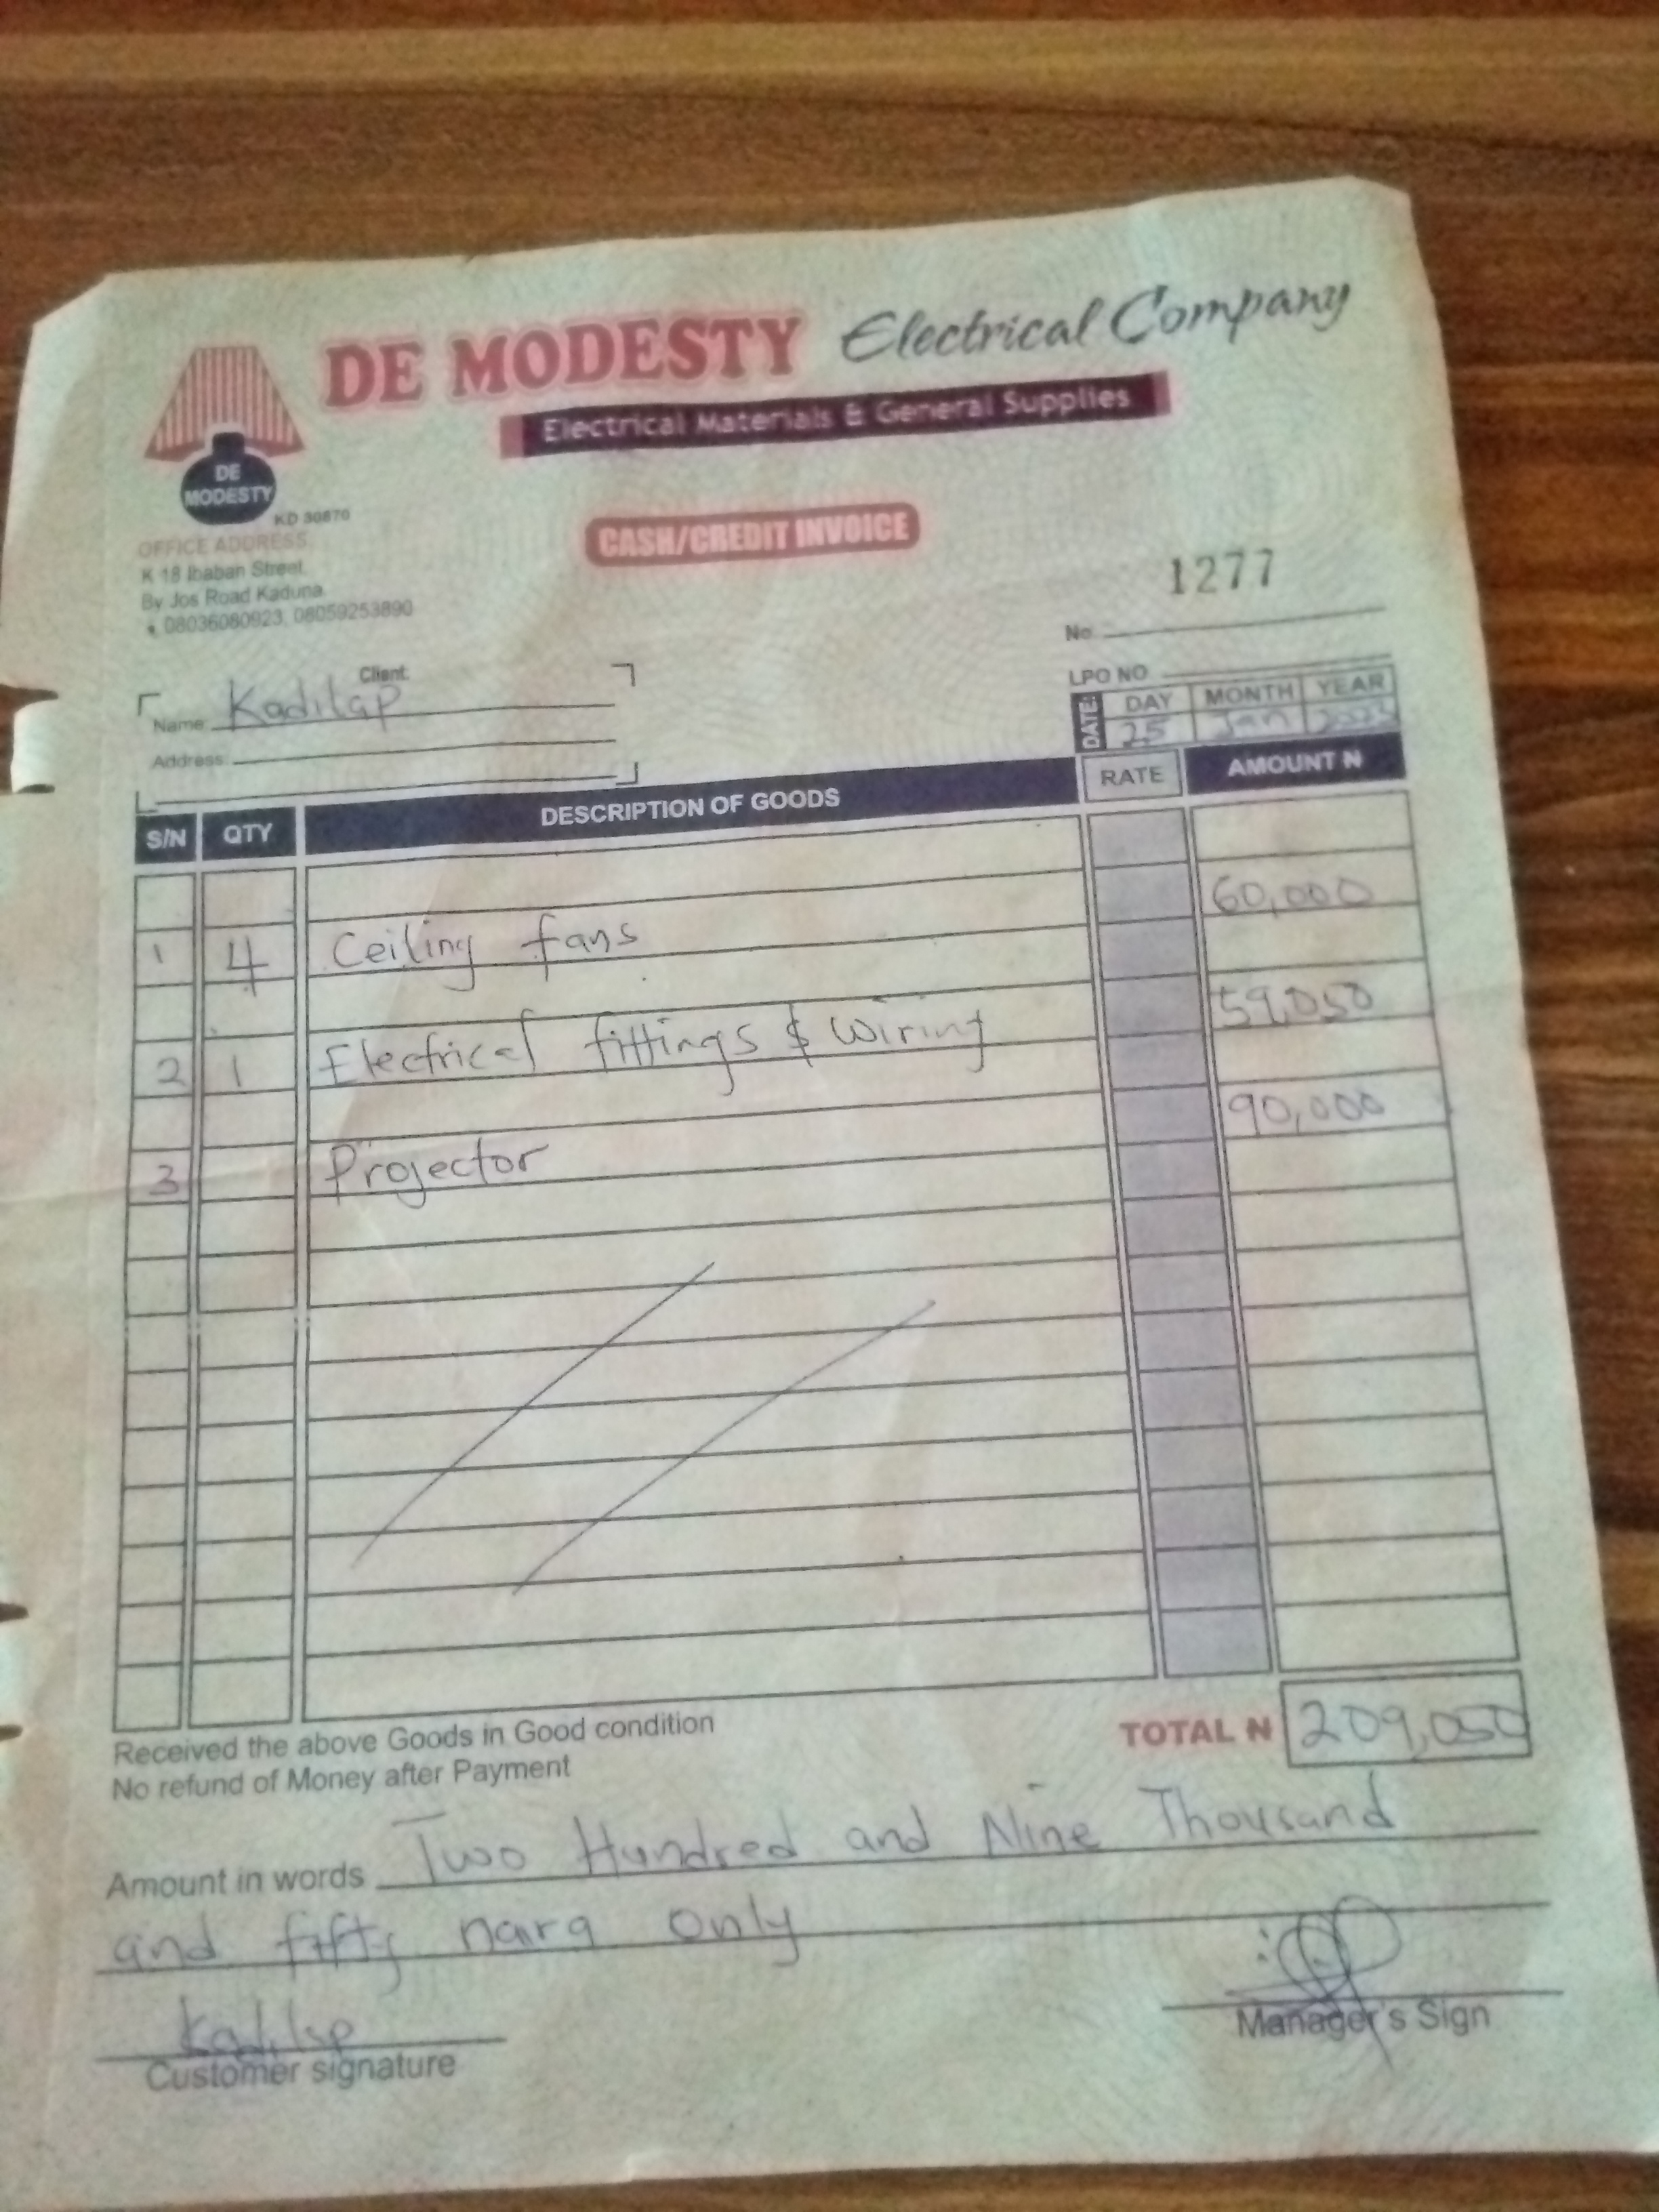 DE MODESTY Electrical Company
Electrical Materials & General Supplies
DE
MODESTY
KD 30870
CASH/CREDIT INVOICE
OFFICE ADDRESS
K 18 Ibaban Street,
By Jos Road Kaduna
08036080923, 08059253890
1277
No.
LPO NO
Client
Name: Kadilap
Address:
DATE: DAY MONTH YEAR
25 Jan 2023
S/N QTY DESCRIPTION OF GOODS RATE AMOUNT N
1 4 Ceiling fans 60,000
2 1 Electrical fittings & Wiring 59,050
3 Projector 90,000
Received the above Goods in Good condition
No refund of Money after Payment
TOTAL N 209,050
Amount in words Two Hundred and Nine Thousand
and fifty naira only
Kadilap
Customer signature
Manager's Sign